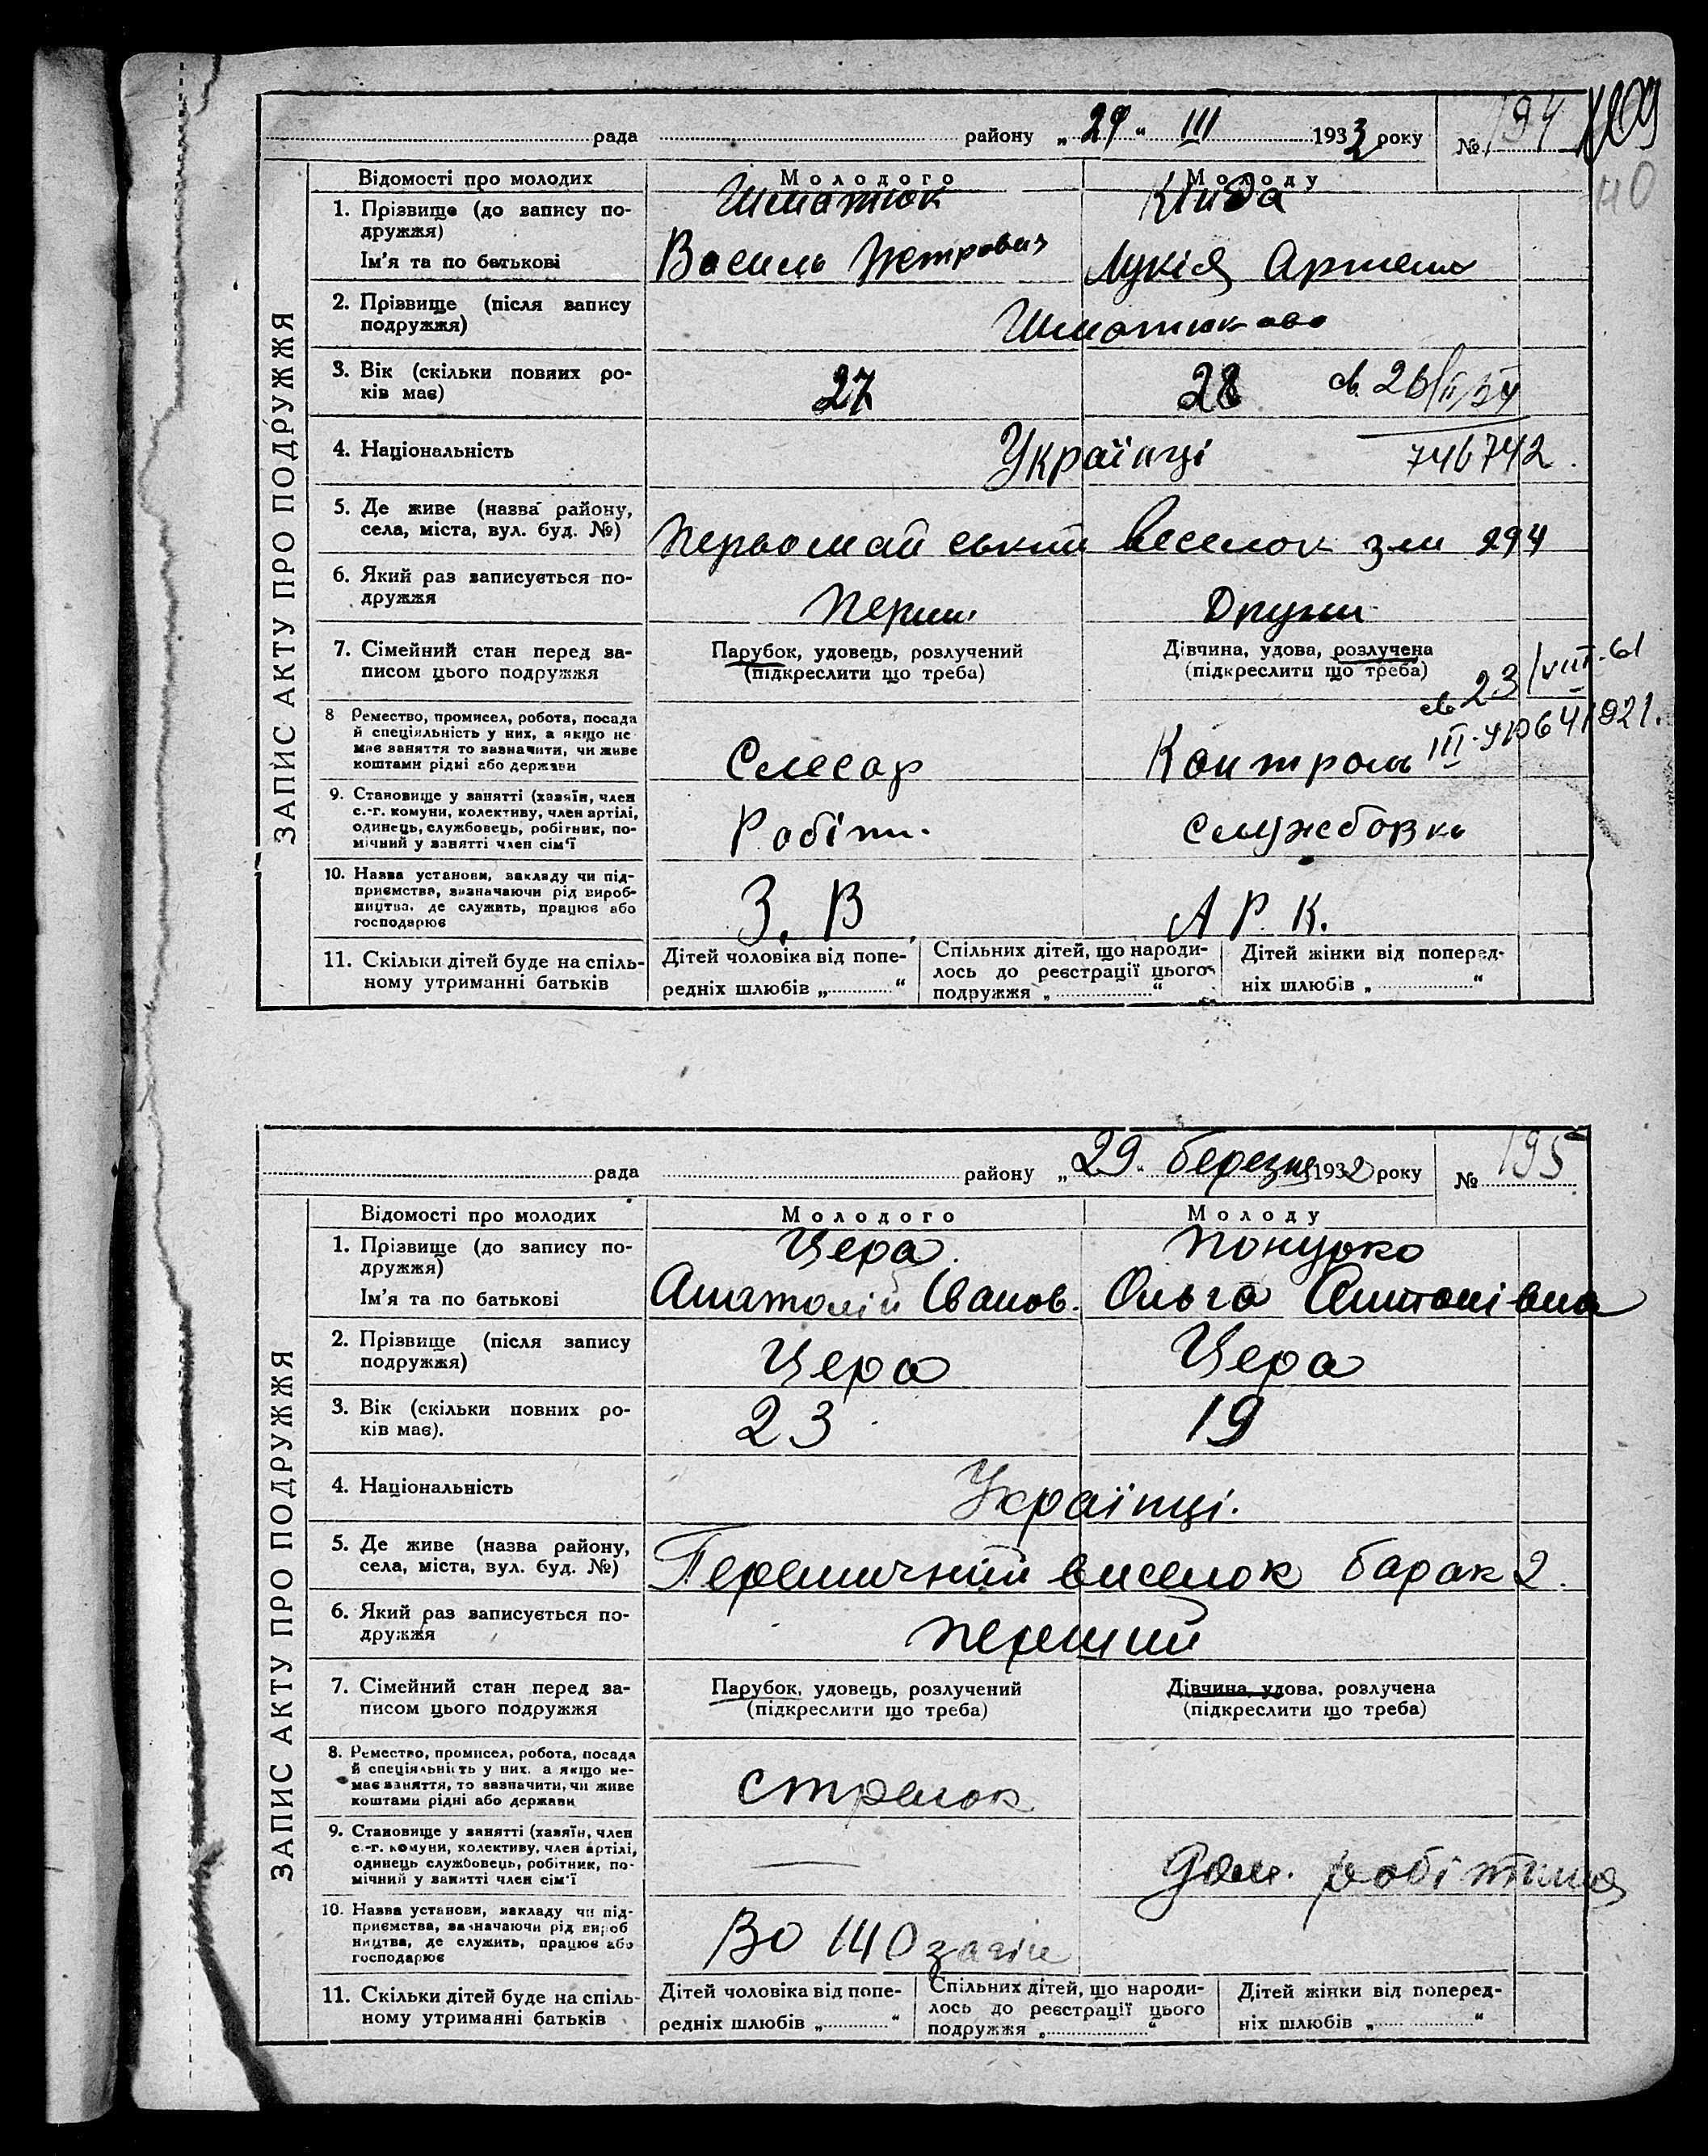 рада району „29" III 1933 року № 194
209
110
ЗАПИС АКТУ ПРО ПОДРУЖЖЯ
Відомості про молодих Молодого Молоду
1. Прізвище (до запису по-
дружжя) Шматюк
Ім'я та по батькові Василь Петрович Лукія Артем
2. Прізвище (після запису
подружжя) Шматюкова
3. Вік (скільки повних ро-
ків має) 27 28 св. 26/II/54
4. Національність Українці 746742.
5. Де живе (назва району,
села, міста, вул. буд. №) Первомайський веселок зем 294
6. Який раз записується по-
дружжя Перш. Други
7. Сімейний стан перед за-
писом цього подружжя
Парубок, удовець, розлучений
(підкреслити що треба)
Дівчина, удова, розлучена
(підкреслити що треба)
св 23/VIII-61
III-УР 641921.
8 Ремество, промисел, робота, посада
й спеціяльність у них, а якщо не
має заняття то зазначити, чи живе
коштами рідні або держави
Слесар Контроль
9. Становище у занятті (хазяїн, член
с.-г. комуни, колективу, член артілі,
одинець, службовець, робітник, по-
мічний у занятті член сім'ї
Робітн. службовка
10. Назва установи, закладу чи під-
приємства, зазначаючи рід вироб-
ництва, де служить, працює або
господарює
З. В. А Р. К.
11. Скільки дітей буде на спіль-
ному утриманні батьків
Дітей чоловіка від попе-
редніх шлюбів „ "
Спільних дітей, що народи-
лось до реєстрації цього
подружжя „ "
Дітей жінки від поперед-
ніх шлюбів „ "
рада району „29" березня 1932 року № 195
ЗАПИС АКТУ ПРО ПОДРУЖЖЯ
Відомості про молодих Молодого Молоду
1. Прізвище (до запису по-
дружжя) Цера. Понурко
Ім'я та по батькові Анатолій Іванов. Ольга Антонівна
2. Прізвище (після запису
подружжя) Цера Цера
3. Вік (скільки повних ро-
ків має). 23 19
4. Національність Українці.
5. Де живе (назва району,
села, міста, вул. буд. №) виселок барак 2.
6. Який раз записується по-
дружжя перший
7. Сімейний стан перед за-
писом цього подружжя
Парубок, удовець, розлучений
(підкреслити що треба)
Дівчина, удова, розлучена
(підкреслити що треба)
8. Ремество, промисел, робота, посада
й спеціяльність у них, а якщо не-
має заняття, то зазначити, чи живе
коштами рідні або держави
стрелок
9. Становище у занятті (хазяїн, член
с.-г. комуни, колективу, член артілі,
одинець службовець, робітник, по-
мічний у занятті член сім'ї
— дом. робітниця
10. Назва установи, закладу чи під-
приємства, зазначаючи рід вироб
ництва, де служить, працює або
господарює
ВО 140 загін
11. Скільки дітей буде на спіль-
ному утриманні батьків
Дітей чоловіка від попе-
редніх шлюбів „ "
Спільних дітей, що народи-
лось до реєстрації цього
подружжя „ "
Дітей жінки від поперед-
ніх шлюбів „ "